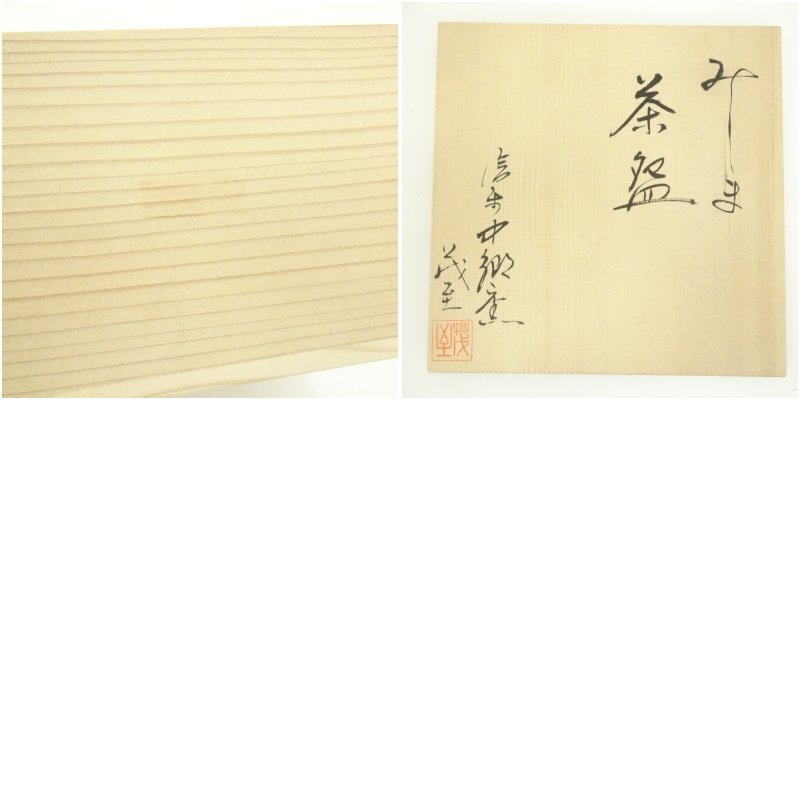 みしま
茶盌
信州中郷窯
茂至
茂至